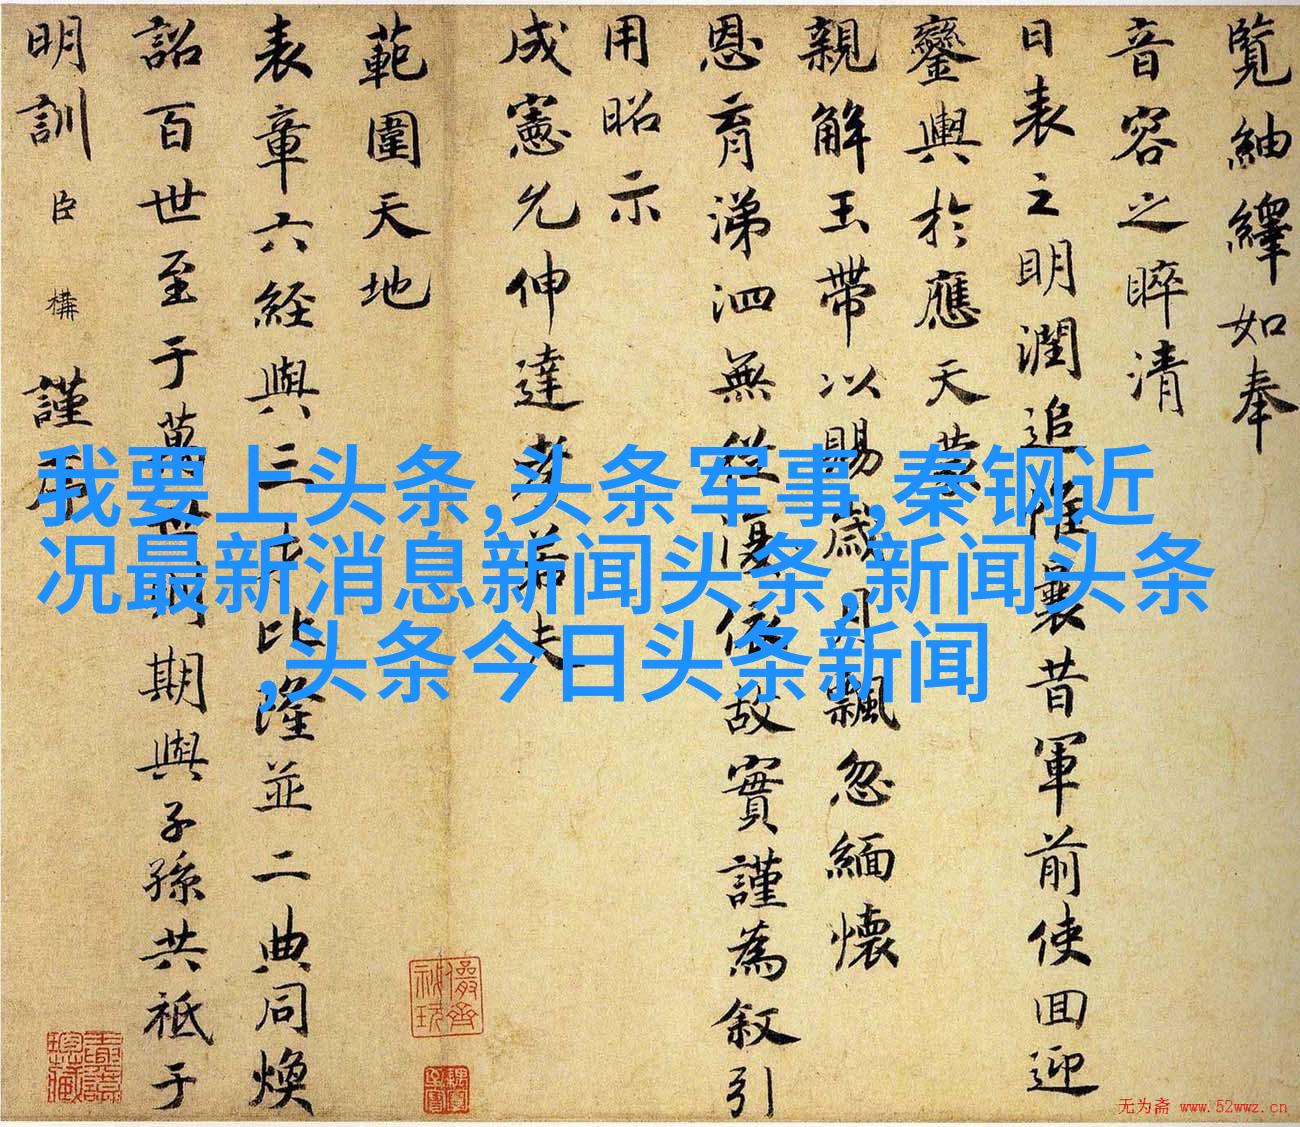 覽紬繹如奉
音容之睟清
日表之明潤追惟曩昔軍前使回迎
鑾輿於應天蒙
親解玉帶以賜歲月飄忽緬懷
恩育涕泗無從復依故實謹為叙引
用昭示
成憲允伸達孝若夫
範圍天地
表章六経與三
比隆並二典同煥
詔百世至于萬世
期與子孫共祗于
明訓臣構謹
我要上头条,头条军事,秦钢近
况最新消息新闻头条,新闻头条
,头条今日头条新闻
无为斋 www.52wwz.cn